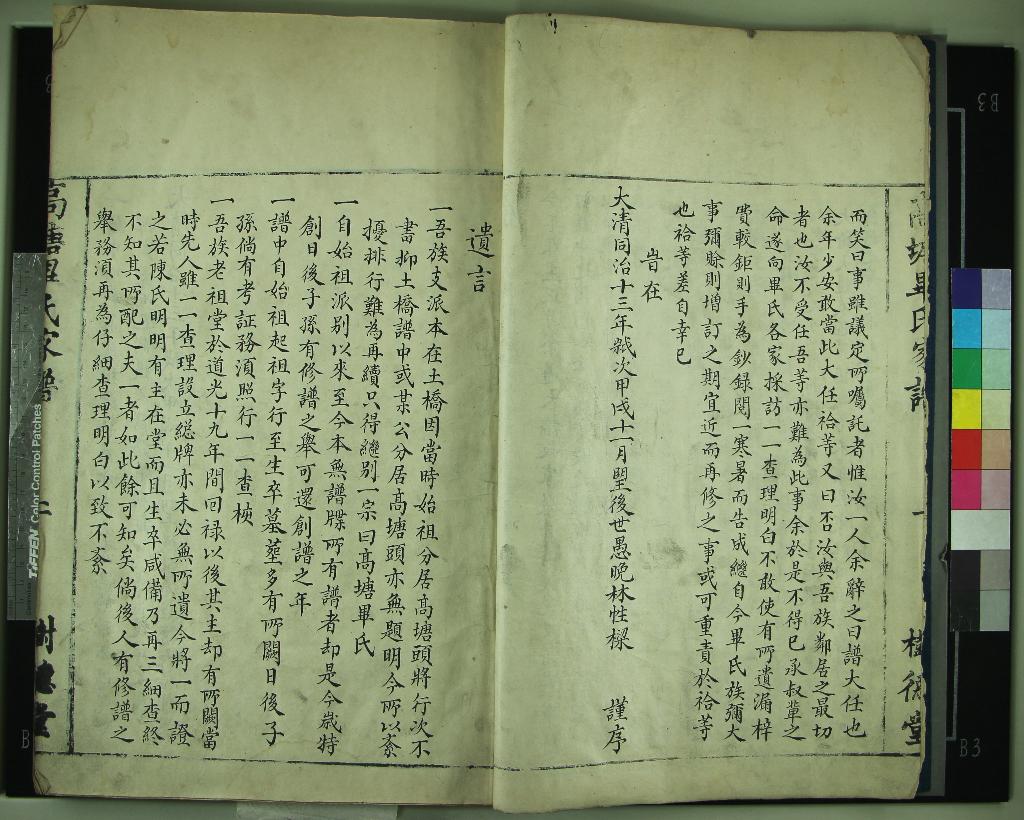 高塘畢氏家譜 一 樹德堂
而笑曰事雖議定所囑託者惟汝一人余辭之曰譜大任也
余年少安敢當此大任祫等又曰否汝與吾族鄰居之最切
者也汝不受任吾等亦難為此事余於是不得已承叔輩之
命遂向畢氏各家採訪一一查理明白不敢使有所遺漏梓
費較鉅則手為鈔錄閱一寒暑而告成繼自今畢氏族彌大
事彌賒則增訂之期宜近而再修之事或可重責於祫等
也祫等差自幸已
旹在
大清同治十三年歲次甲戌十一月塱後世愚晚林性樑 謹序
遺言
一吾族支派本在土橋因當時始祖分居高塘頭將行次不
書抑土橋譜中或某公分居高塘頭亦無題明今所以紊
擾排行難為再續只得繼別一宗曰高塘畢氏
一自始祖派別以來至今本無譜牒所有譜者却是今歲特
創日後子孫有修譜之舉可還創譜之年
一譜中自始祖起祖字行至生卒墓塟多有所闕日後子
孫倘有考証務須照行一一查核
一吾族老祖堂於道光十九年間回祿以後其主却有所闕當
時先人雖一一查理設立総牌亦未必無所遺今將一而證
之若陳氏明明有主在堂而且生卒咸備乃再三細查終
不知其所配之夫一者如此餘可知矣倘後人有修譜之
舉務須再為仔細查理明白以致不紊
高塘畢氏家譜 二 樹德堂
TIFFEN Color Control Patches
B3
B3
B